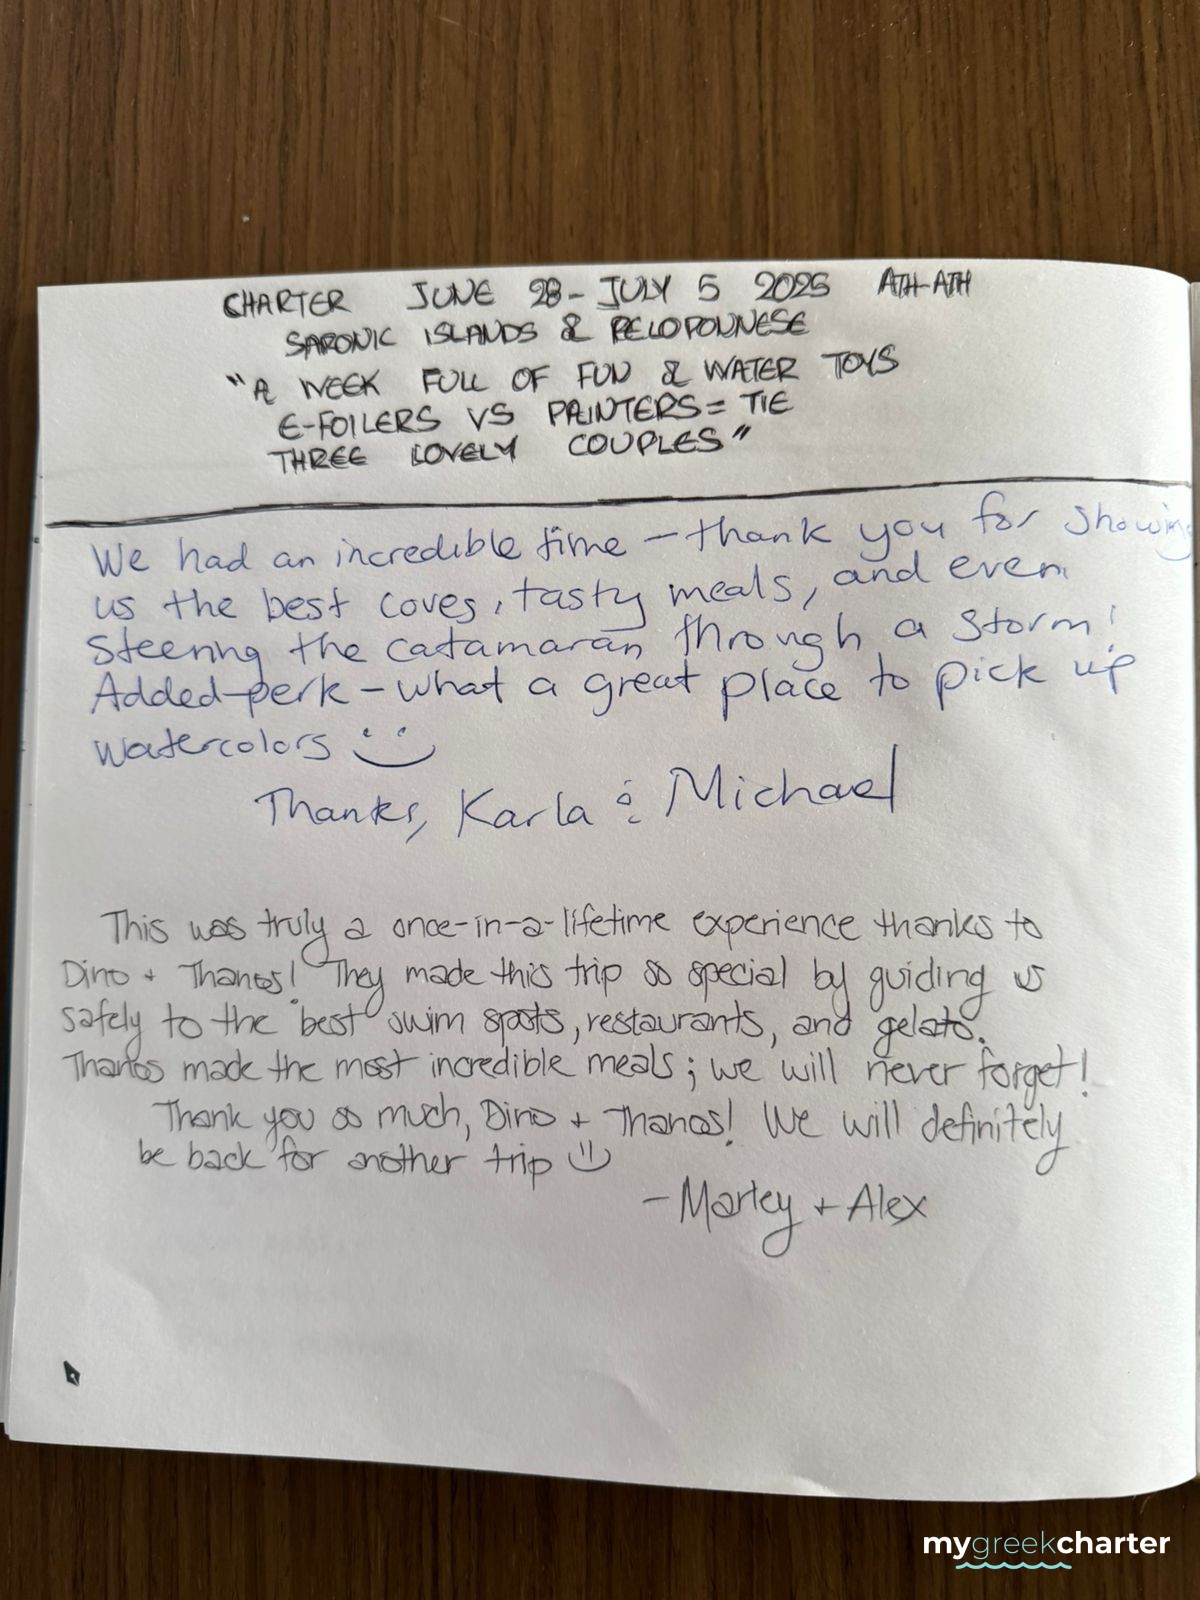 CHARTER JUNE 28 - JULY 5 2025 ATH-ATH
SARONIC ISLANDS & PELOPONNESE
"A WEEK FULL OF FUN & WATER TOYS
E-FOILERS VS PAINTERS = TIE
THREE LOVELY COUPLES"
We had an incredible time - thank you for showing
us the best coves, tasty meals, and even
steering the catamaran through a storm!
Added perk - what a great place to pick up
watercolors :)
Thanks, Karla & Michael
This was truly a once-in-a-lifetime experience thanks to
Dino + Thanos! They made this trip so special by guiding us
safely to the best swim spots, restaurants, and gelato.
Thanos made the most incredible meals; we will never forget!
Thank you so much, Dino + Thanos! We will definitely
be back for another trip :)
- Marley + Alex
mygreekcharter